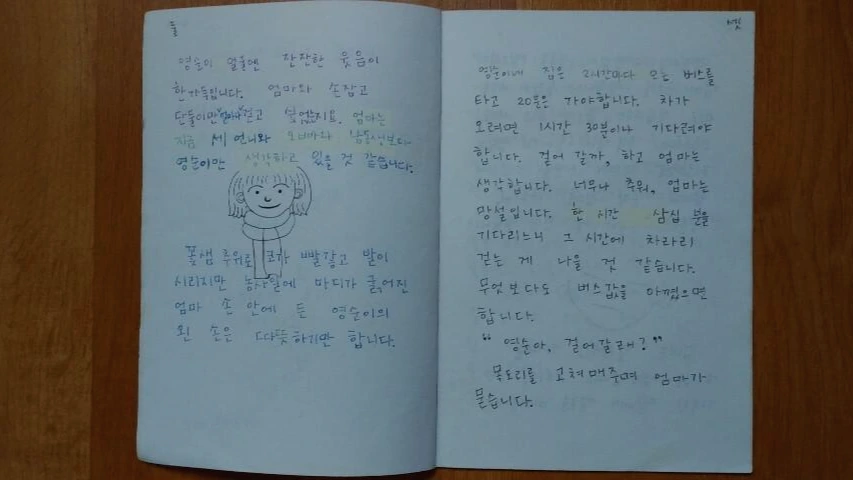 둘
영순이 얼굴엔 잔잔한 웃음이
한가득입니다. 엄마와 손잡고
단둘이만 걷고 싶었지요. 엄마는
지금 세 언니와 오빠와 남동생보다
영순이만 생각하고 있을 것 같습니다.
꽃샘 추위로 코가 빨갛고 발이
시리지만 농사일에 마디가 굵어진
엄마 손 안에 든 영순이의
왼 손은 따뜻하기만 합니다.
셋
영순이네 집은 2시간마다 오는 버스를
타고 20분은 가야합니다. 차가
오려면 1시간 30분이나 기다려야
합니다. 걸어 갈까, 하고 엄마는
생각합니다. 너무나 추워, 엄마는
망설입니다. 한 시간 삼십 분을
기다리느니 그 시간에 차라리
걷는 게 나을 것 같습니다.
무엇보다도 버스값을 아꼈으면
합니다.
“영순아, 걸어갈래?”
목도리를 고쳐매주며 엄마가
묻습니다.